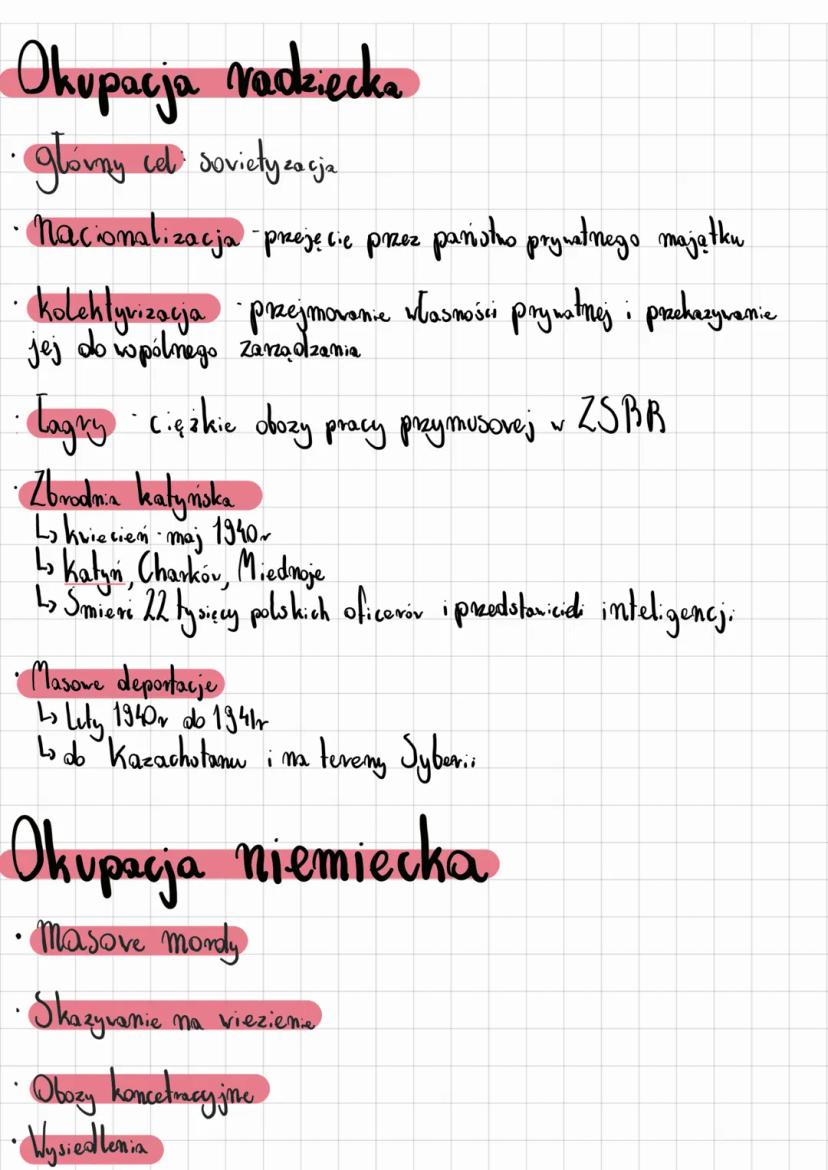 Okupacja radziecka
· główny cel: sovietyzacja
· Nacjonalizacja - przejęcie przez państwo prywatnego majątku
· kolektyvizacja - przejmovanie własności prywatnej i przekazywanie
jej do wspólnego zarządzania
· Łagry - ciężkie obozy pracy przymusovej w ZSRR
· Zbrodnia katyńska
↳ kviecień - maj 1940r
↳ Katyń, Charków, Miednoje
↳ Śmierć 22 tysięcy polskich oficerów i przedstawicieli inteligencji
· Masowe deportacje
↳ Luty 1940r do 1941r
↳ do Kazachstanu i na tereny Syberii
Okupacja niemiecka
· Masove mordy
· Skazyvanie na viezienie
· Obozy koncetracyjne
· Wysiedlenia